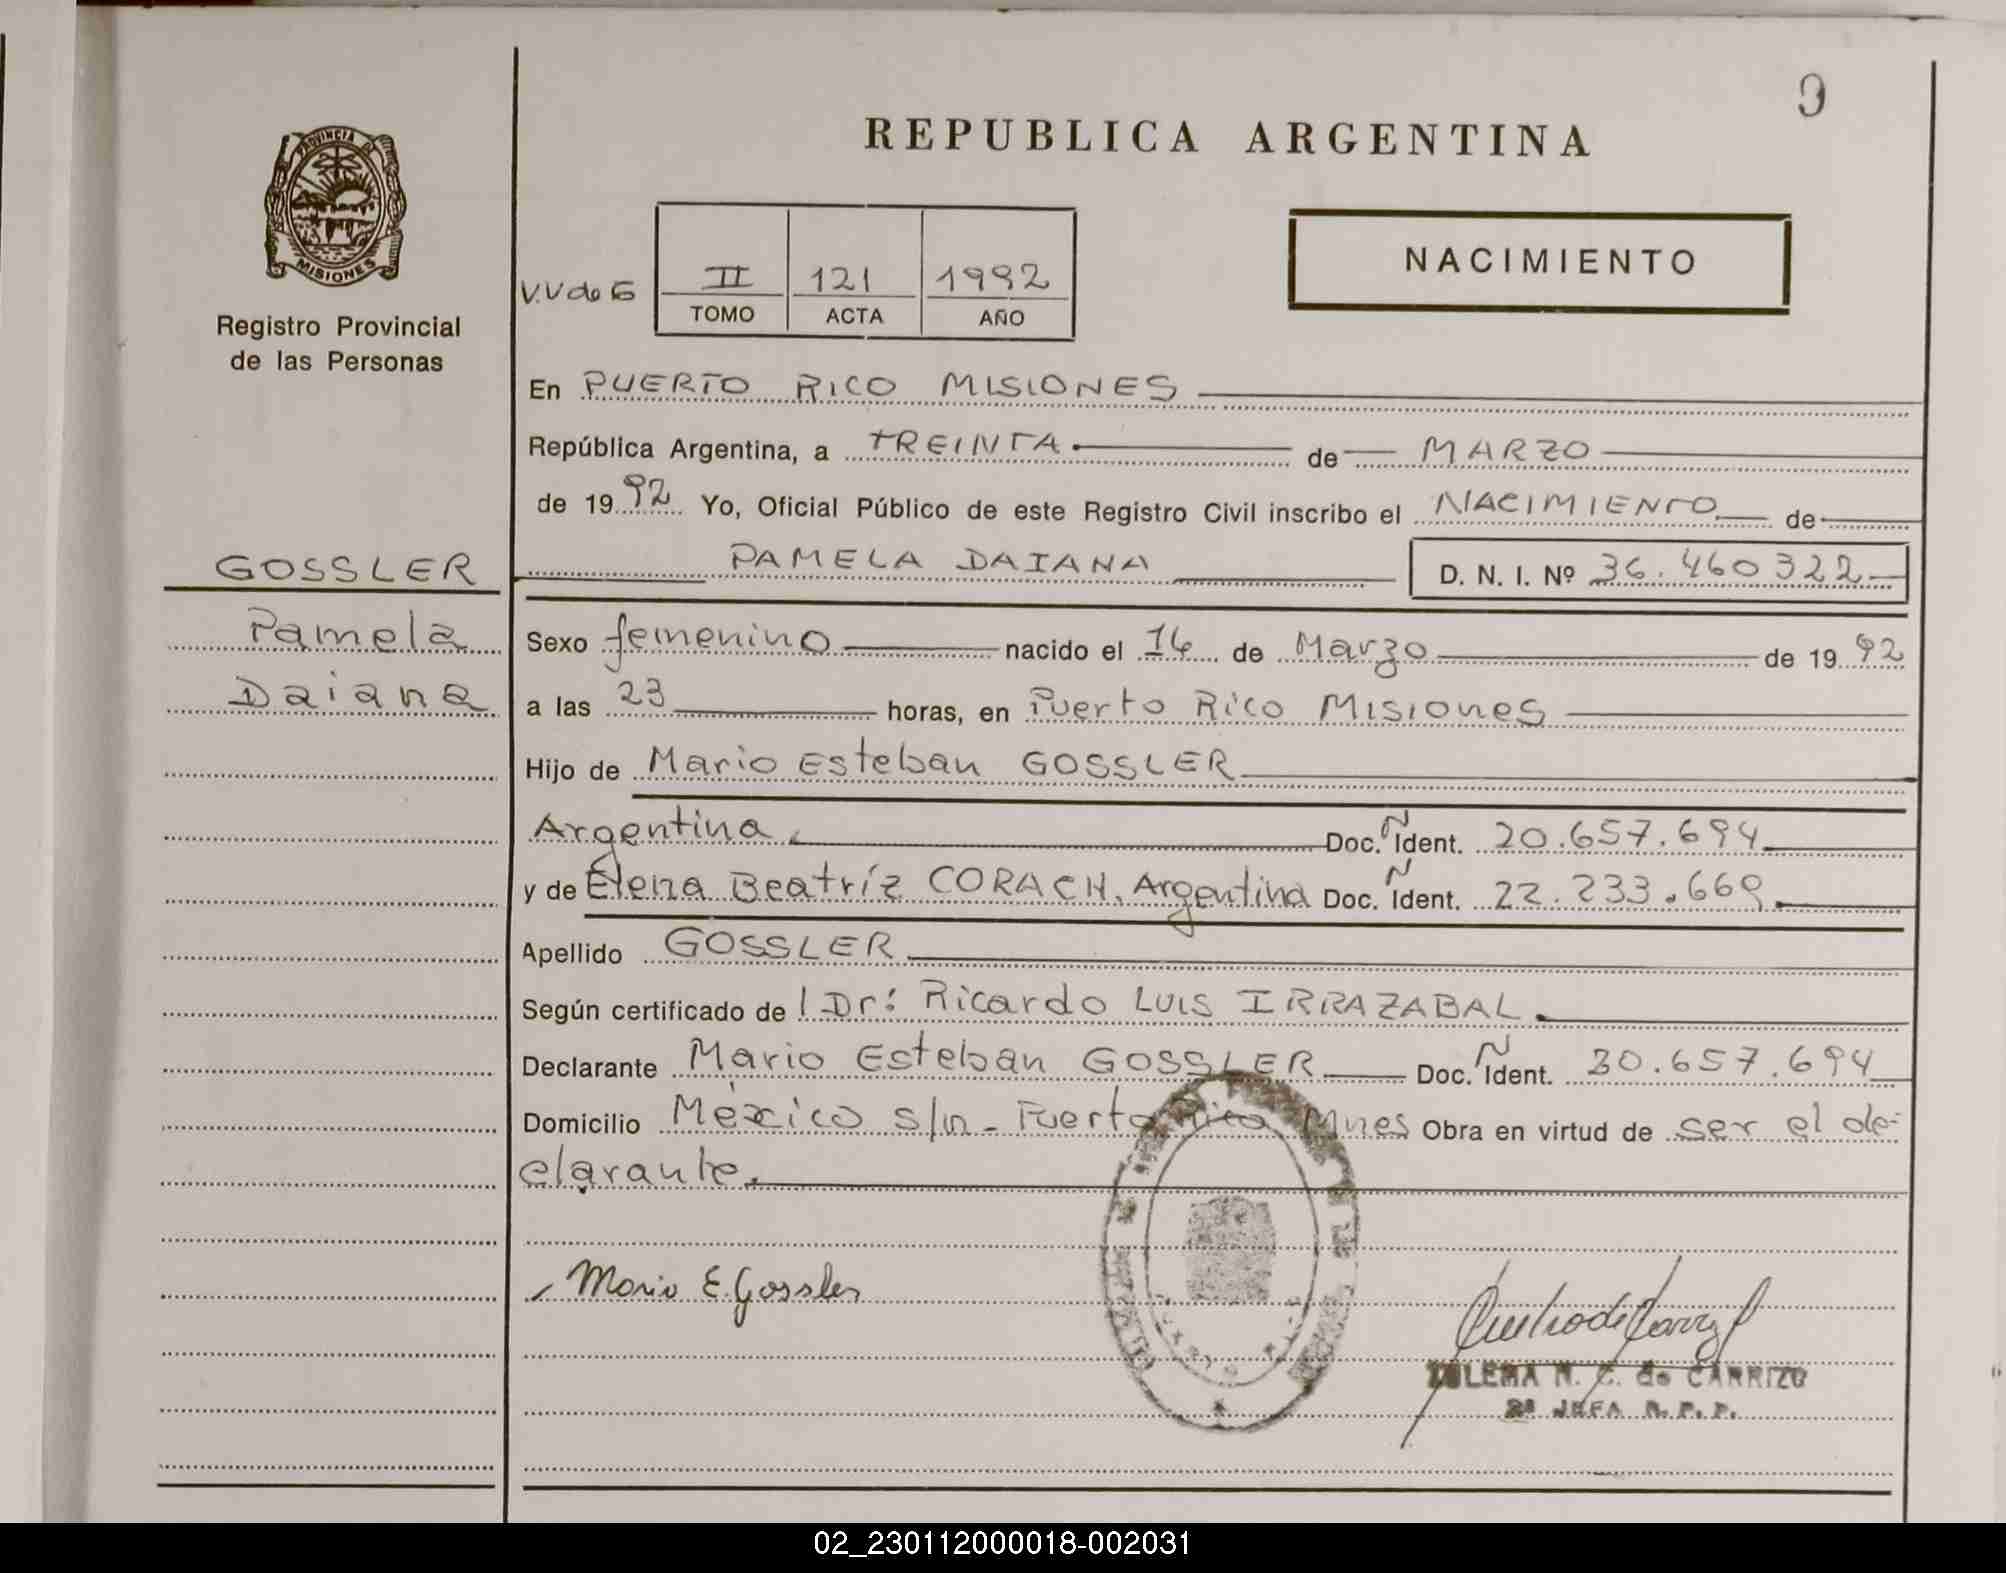 REPUBLICA ARGENTINA
PROVINCIA DE
MISIONES
Registro Provincial
de las Personas
V.V de G
II 121 1992
TOMO ACTA AÑO
NACIMIENTO
En PUERTO RICO MISIONES
República Argentina, a TREINTA de MARZO
de 1992 Yo, Oficial Público de este Registro Civil inscribo el NACIMIENTO de
PAMELA DAIANA D. N. I. Nº 36.460322
GOSSLER
Pamela
Daiana
Sexo femenino nacido el 14 de Marzo de 1992
a las 23 horas, en Puerto Rico Misiones
Hijo de Mario Esteban GOSSLER
Argentina. Doc. Ñ Ident. 20.657.694
y de Elena Beatríz CORACH, Argentina Doc. Ñ Ident. 22.233.669
Apellido GOSSLER
Según certificado de l Dr: Ricardo Luis IRRAZABAL.
Declarante Mario Esteban GOSSLER Doc. Ñ Ident. 20.657.694
Domicilio México s/n - Puerto Rico Mnes Obra en virtud de ser el de-
clarante.
Mario E. Gossler
ZULEMA N. C. de CARRIZO
2ª JEFA R. P. P.
02_230112000018-002031